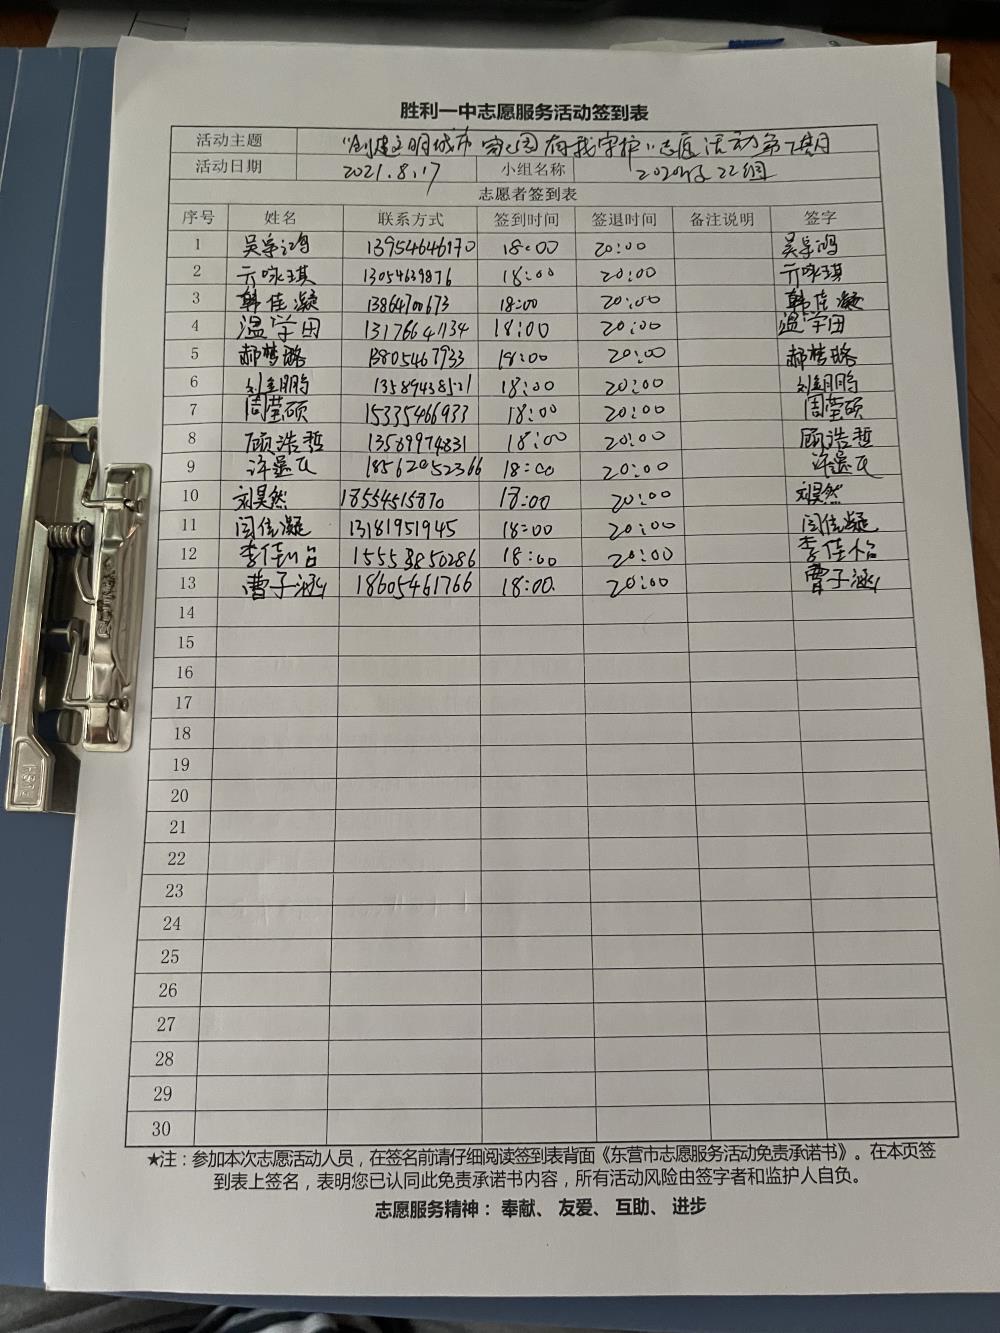 胜利一中志愿服务活动签到表
活动主题 "创建文明城市 家园有我守护"志愿活动第7期
活动日期 2021.8.17 小组名称 2020级22组
志愿者签到表
序号 姓名 联系方式 签到时间 签退时间 备注说明 签字
1 吴宗鸿 13954646170 18:00 20:00 吴宗鸿
2 亓咏琪 13054639876 18:00 20:00 亓咏琪
3 韩佳凝 13864700673 18:00 20:00 韩佳凝
4 温学田 13176641134 18:00 20:00 温学田
5 郝梦璐 13805467933 18:00 20:00 郝梦璐
6 13589438521 18:00 20:00
7 周莹硕 15335466933 18:00 20:00 周莹硕
8 顾浩哲 13589974831 18:00 20:00 顾浩哲
9 18562052366 18:00 20:00
10 刘昊然 18554515870 18:00 20:00 刘昊然
11 闫佳凝 13181951945 18:00 20:00 闫佳凝
12 李佳怡 15553850286 18:00 20:00 李佳怡
13 曹子涵 18605461766 18:00 20:00 曹子涵
14
15
16
17
18
19
20
21
22
23
24
25
26
27
28
29
30
★注：参加本次志愿活动人员，在签名前请仔细阅读签到表背面《东营市志愿服务活动免责承诺书》。在本页签
到表上签名，表明您已认同此免责承诺书内容，所有活动风险由签字者和监护人自负。
志愿服务精神：奉献、友爱、互助、进步
PUSH